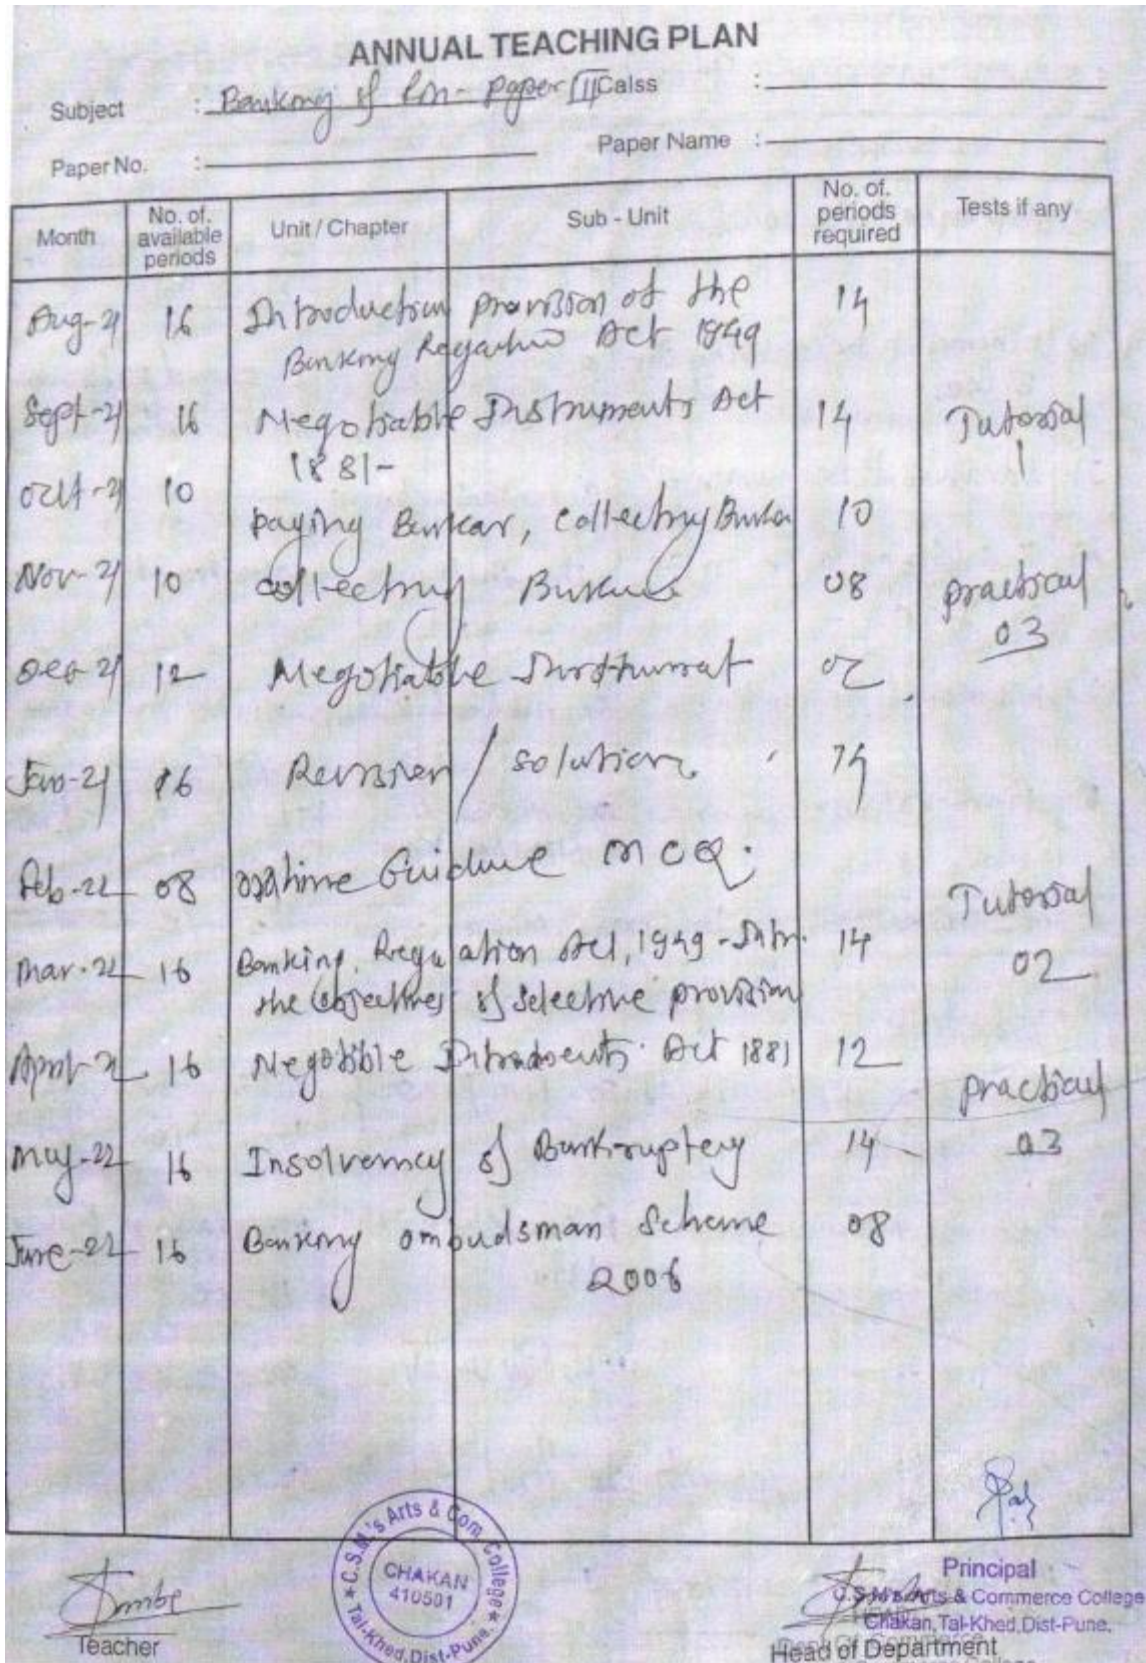 ANNUAL TEACHING PLAN
Subject : Banking & Fin - Paper III Calss :
Paper No. : Paper Name :
Month No. of. available periods Unit / Chapter Sub - Unit No. of. periods required Tests if any
Aug-21 16 Introduction provision of the 14
Banking Act 1949
Sept-21 16 Negotiable Instruments Act 14 Tutorial
1881- 1
Oct-21 10
paying Bankar, collecting 10
Nov-21 10 collecting 08 practical
03
Dec-21 12 Negotiable 02
Jan-21 16 Revision / solution 14
Feb-22 08 Guidance MCQ.
Tutorial
Mar-22 16 Banking Regulation Act, 1949 - Intr. 14 02
the objectives & selective provision
April-22 16 Negotible Act 1881 12
practical
May-22 16 Insolvency & Bankruptcy 14 03
June-22 16 Banking ombudsman Scheme 08
2006
C.S.M.'s Arts & Com. College
CHAKAN
410501
Tal-Khed, Dist-Pune.
Principal
C.S.M's Arts & Commerce College
Chakan, Tal-Khed, Dist-Pune.
Teacher
Head of Department